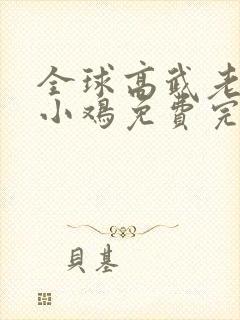 全球高武老
小鸡免費完
貝基